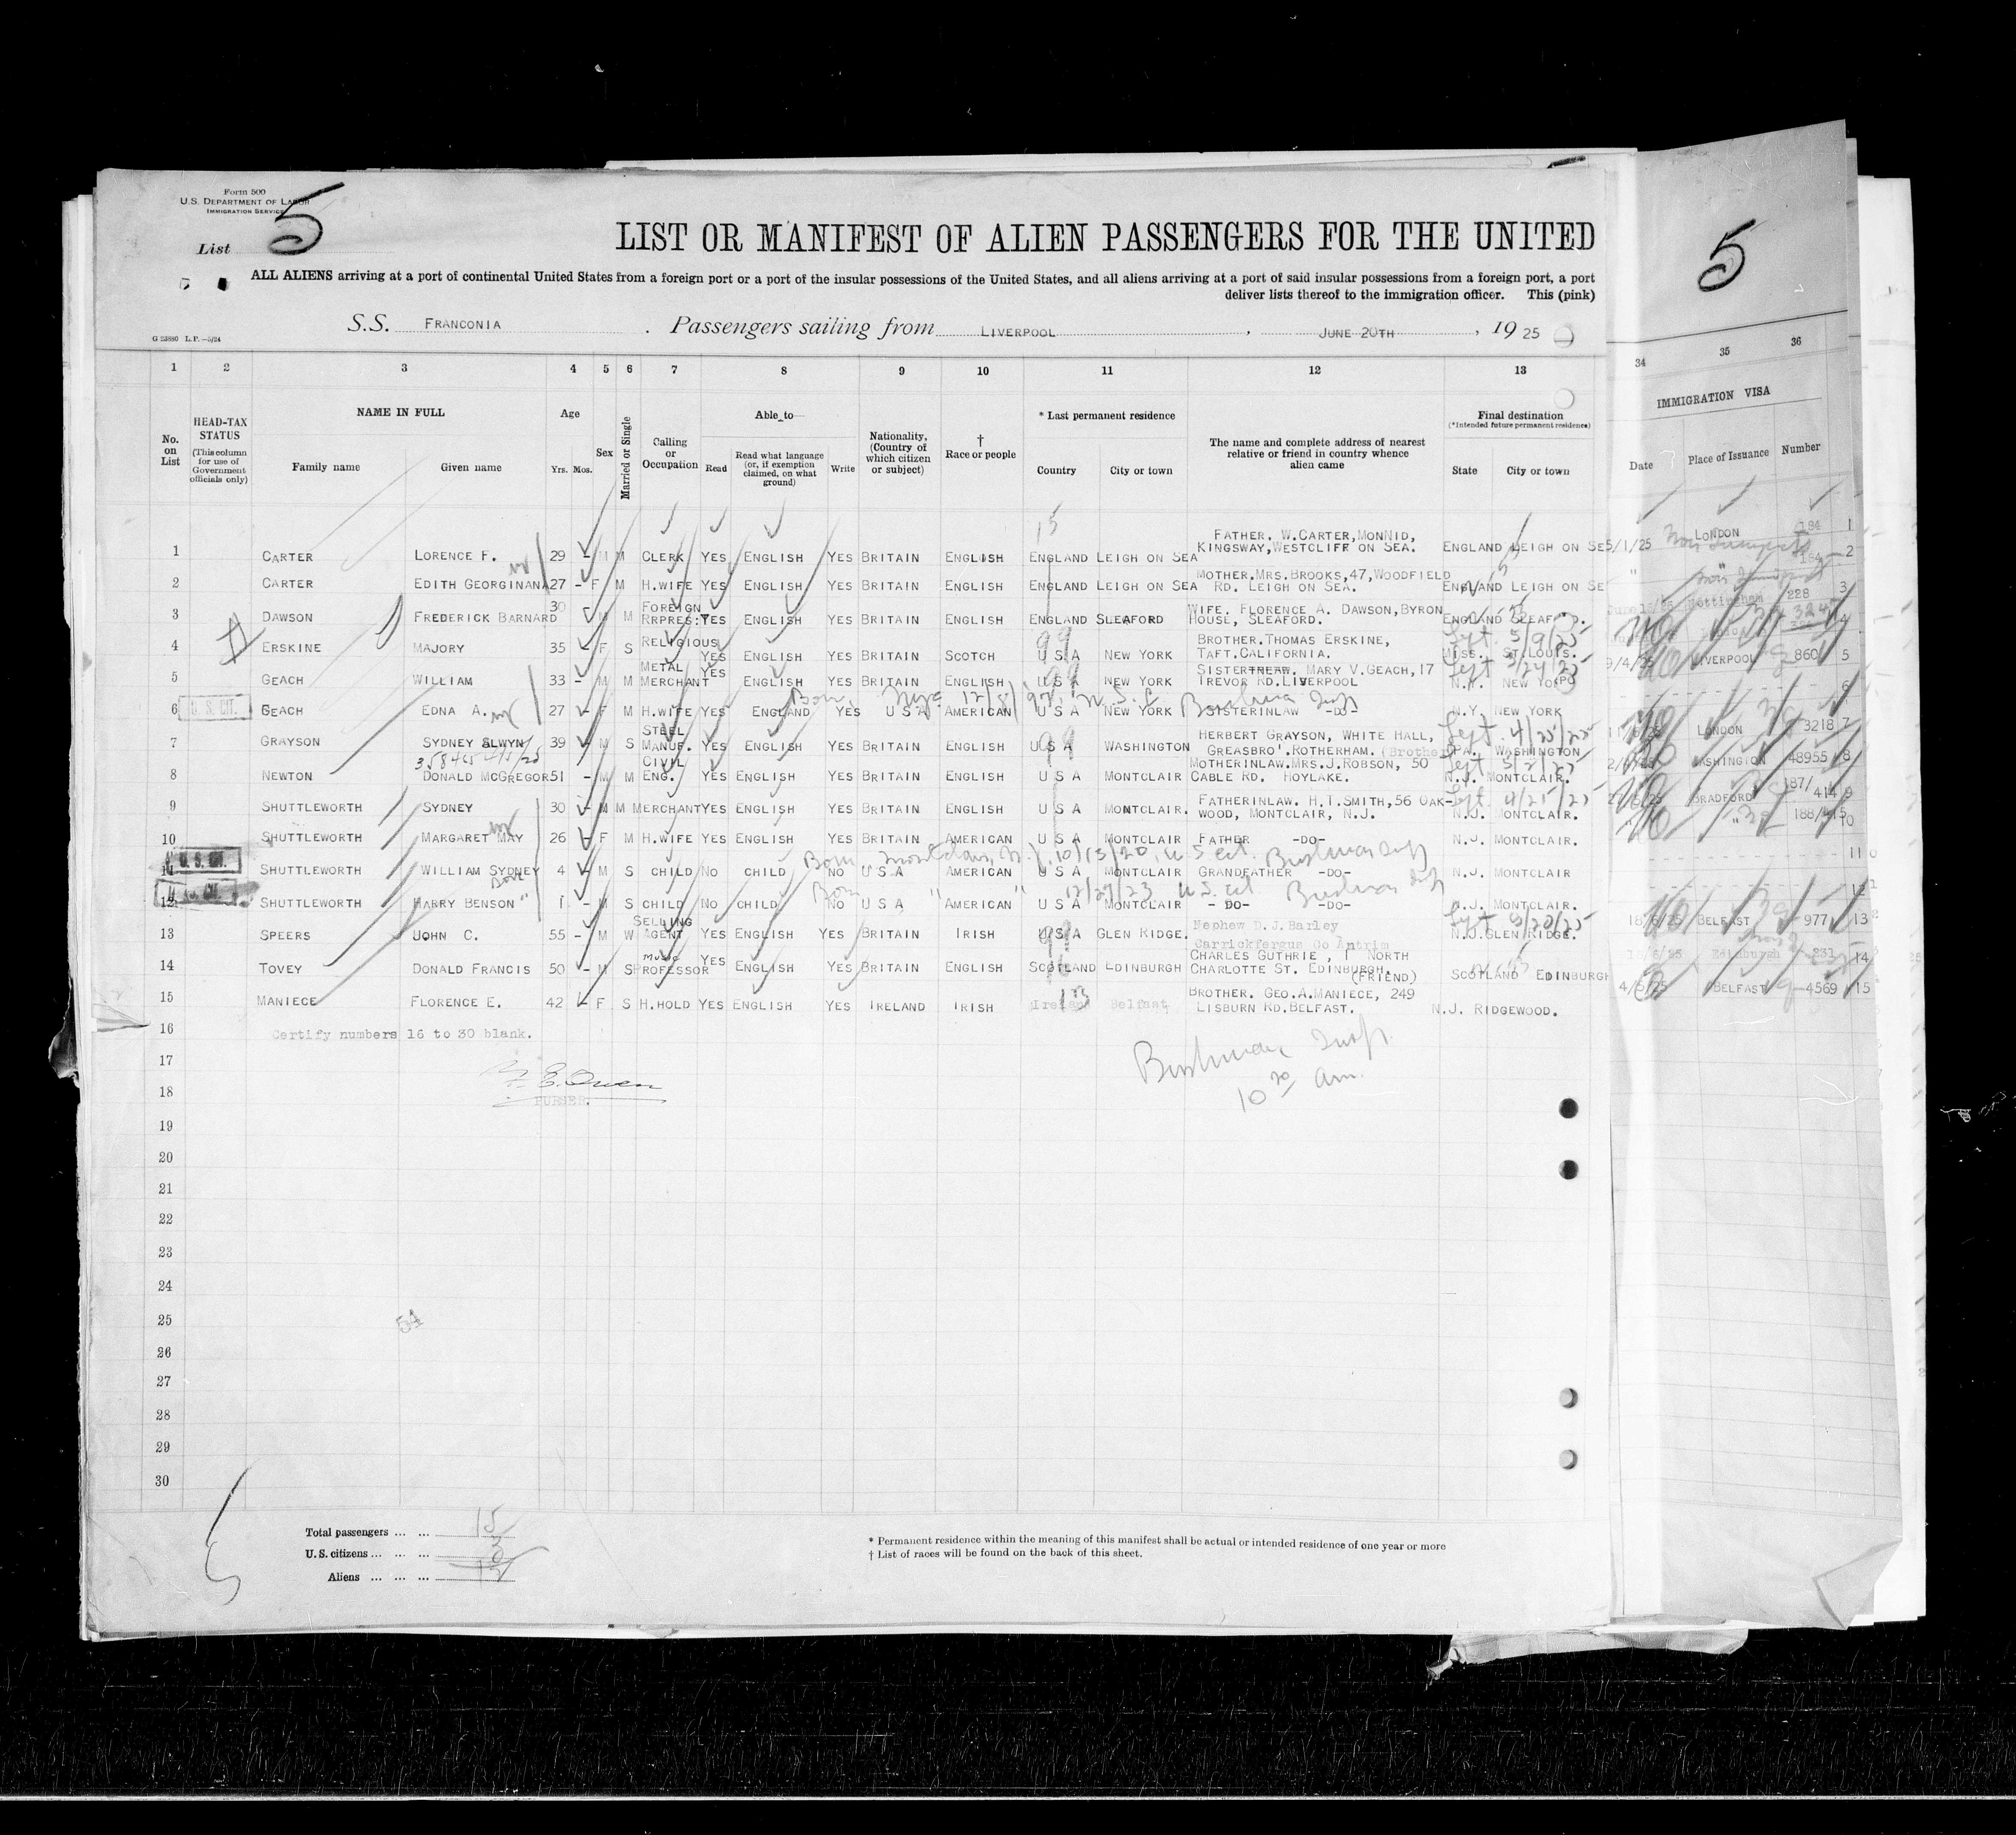 Form 500
U.S. DEPARTMENT OF LABOR
IMMIGRATION SERVICE
List 5
5
LIST OR MANIFEST OF ALIEN PASSENGERS FOR THE UNITED
ALL ALIENS arriving at a port of continental United States from a foreign port or a port of the insular possessions of the United States, and all aliens arriving at a port of said insular possessions from a foreign port, a port
deliver lists thereof to the immigration officer. This (pink)
S.S. FRANCONIA . Passengers sailing from LIVERPOOL , JUNE 20TH , 19 25
G 23880 L.P.—5/24
1 2 3 4 5 6 7 8 9 10 11 12 13 34 35 36
No. on List
HEAD-TAX STATUS
(This column for use of Government officials only)
NAME IN FULL
Family name Given name
Age
Yrs. Mos.
Sex
Married or Single
Calling or Occupation
Able to
Read Read what language (or, if exemption claimed, on what ground) Write
Nationality, (Country of which citizen or subject)
† Race or people
* Last permanent residence
Country City or town
The name and complete address of nearest relative or friend in country whence alien came
Final destination
(*Intended future permanent residence)
State City or town
IMMIGRATION VISA
Date Place of Issuance Number
1 CARTER LORENCE F. 29 - M M CLERK YES ENGLISH YES BRITAIN ENGLISH ENGLAND LEIGH ON SEA FATHER. W.CARTER,MONNID, KINGSWAY,WESTCLIFF ON SEA. ENGLAND LEIGH ON SE 5/1/25 LONDON 184 1
2 CARTER EDITH GEORGINANA 27 - F M H.WIFE YES ENGLISH YES BRITAIN ENGLISH ENGLAND LEIGH ON SEA MOTHER.MRS.BROOKS,47,WOODFIELD RD. LEIGH ON SEA. ENGLAND LEIGH ON SE " " 184 2
3 DAWSON FREDERICK BARNARD 30 M M FOREIGN RRPRES: YES ENGLISH YES BRITAIN ENGLISH ENGLAND SLEAFORD WIFE. FLORENCE A. DAWSON,BYRON HOUSE, SLEAFORD. ENGLAND SLEAFORD. Nottingham 228 3
4 ERSKINE MAJORY 35 F S RELIGIOUS YES ENGLISH YES BRITAIN SCOTCH U S A NEW YORK BROTHER.THOMAS ERSKINE, TAFT.CALIFORNIA. MISS. ST.LOUIS. 4
5 GEACH WILLIAM 33 - M M METAL MERCHANT YES ENGLISH YES BRITAIN ENGLISH U S A NEW YORK SISTERINLAW. MARY V.GEACH,17 TREVOR RD.LIVERPOOL N.Y. NEW YORK 9/4/25 LIVERPOOL 860 5
U. S. CIT.
6 GEACH EDNA A. 27 - F M H.WIFE YES ENGLAND YES U S A AMERICAN U S A NEW YORK SISTERINLAW -DO- N.Y. NEW YORK 6
7 GRAYSON SYDNEY ELWYN 39 M S STEEL MANUF. YES ENGLISH YES BRITAIN ENGLISH U S A WASHINGTON HERBERT GRAYSON, WHITE HALL, GREASBRO'.ROTHERHAM. (Brother) PA. WASHINGTON LONDON 3218 7
8 NEWTON DONALD MCGREGOR 51 - M M CIVIL ENG. YES ENGLISH YES BRITAIN ENGLISH U S A MONTCLAIR MOTHERINLAW.MRS.J.ROBSON, 50 CABLE RD. HOYLAKE. N.J. MONTCLAIR. WASHINGTON 48955 8
9 SHUTTLEWORTH SYDNEY 30 - M M MERCHANT YES ENGLISH YES BRITAIN ENGLISH U S A MONTCLAIR. FATHERINLAW. H.T.SMITH,56 OAK-WOOD, MONTCLAIR, N.J. N.J. MONTCLAIR. BRADFORD 187/414 9
10 SHUTTLEWORTH MARGARET MAY 26 F M H.WIFE YES ENGLISH YES BRITAIN AMERICAN U S A MONTCLAIR FATHER -DO- N.J. MONTCLAIR. " 188/415 10
U. S. CIT.
11 SHUTTLEWORTH WILLIAM SYDNEY 4 - M S CHILD NO CHILD NO U S A AMERICAN U S A MONTCLAIR GRANDFATHER -DO- N.J. MONTCLAIR 11
U. S. CIT.
12 SHUTTLEWORTH HARRY BENSON 1 - M S CHILD NO CHILD NO U S A AMERICAN U S A MONTCLAIR -DO- -DO- N.J. MONTCLAIR. 12
13 SPEERS JOHN C. 55 - M W SELLING AGENT YES ENGLISH YES BRITAIN IRISH U S A GLEN RIDGE. Nephew D.J.Barley Carrickfergus Co Antrim N.J. GLEN RIDGE. 18/6/25 BELFAST 977 13
14 TOVEY DONALD FRANCIS 50 - M S MUSIC PROFESSOR YES ENGLISH YES BRITAIN ENGLISH SCOTLAND EDINBURGH CHARLES GUTHRIE, 1 NORTH CHARLOTTE ST. EDINBURGH. (FRIEND) SCOTLAND EDINBURGH 18/6/25 Edinburgh 231 14
15 MANIECE FLORENCE E. 42 - F S H.HOLD YES ENGLISH YES IRELAND IRISH Ireland Belfast BROTHER. GEO.A.MANIECE, 249 LISBURN RD.BELFAST. N.J. RIDGEWOOD. BELFAST 4569 15
16 Certify numbers 16 to 30 blank.
17
18
PURSER.
10 20 am.
19
20
21
22
23
24
25
54
26
27
28
29
30
Total passengers ... ... 15
U.S. citizens ... ... ... 3
Aliens ... ... ... 12
* Permanent residence within the meaning of this manifest shall be actual or intended residence of one year or more
† List of races will be found on the back of this sheet.